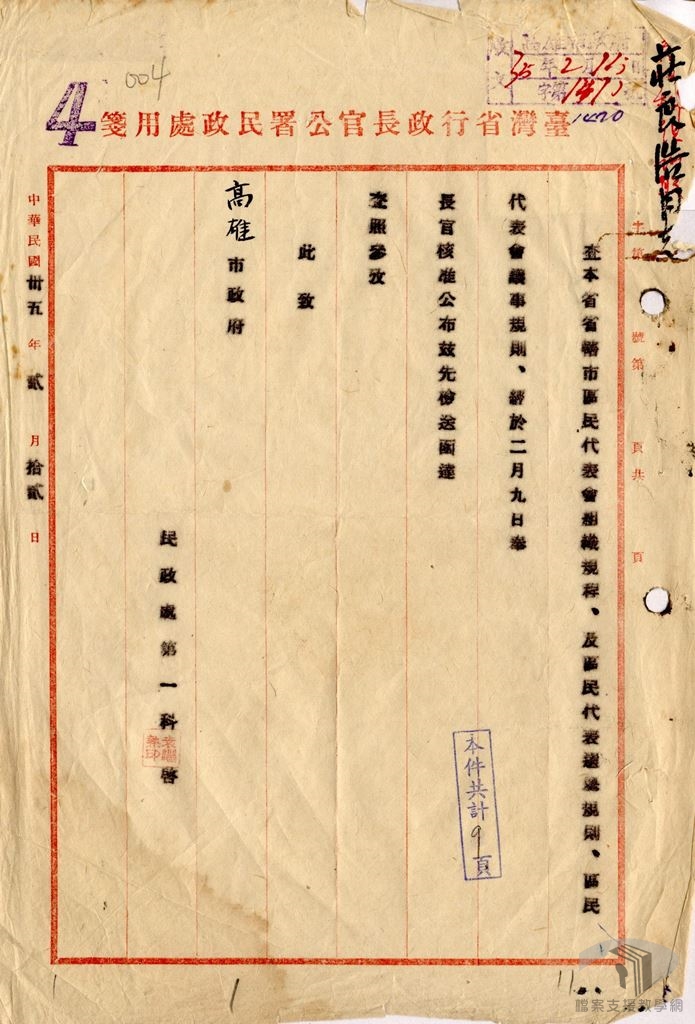 004
4
臺灣省行政長官公署民政處用箋
高雄市政府
35年2月15日
字第1470
1470
主第 號第 頁共 頁
查本省省轄市區民代表會組織規程、及區民代表選舉規則、區民
代表會議事規則、經於二月九日奉
長官核准公布茲先檢送函達
查照參攷
此致
高雄市政府
民政處第一科啓
本件共計9頁
中華民國卅五年貳月拾貳日
檔案支援教學網